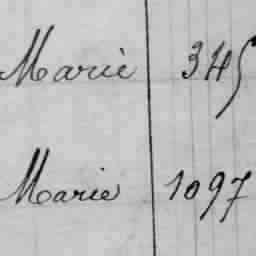 Marie 345
Marie 1097